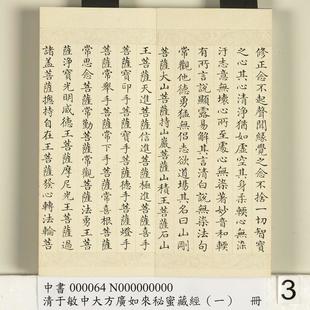 修正念不起聲聞緣覺之念不捨一切智寶
之心其心清淨猶如虛空其身柔軟心無染
汙志意無壞心所至處心無染著妙音和軟
有所言說顯露易解其言清白說無染法句
常觀他德勇猛無侶志欲道場其名曰山剛
菩薩大山菩薩持山巖菩薩山積王菩薩石山
王菩薩天進菩薩信進菩薩極進菩薩喜手
菩薩寶印手菩薩寶手菩薩德手菩薩燈手
菩薩常舉手菩薩常下手菩薩常喜根菩薩
常思念菩薩常勤菩薩常觀菩薩法勇王菩
薩淨寶光明威德王菩薩摩尼光王菩薩過
諸蓋菩薩攝持自在王菩薩發心轉法輪菩
中書 000064 N000000000
清于敏中大方廣如來秘蜜藏經（一） 冊
3